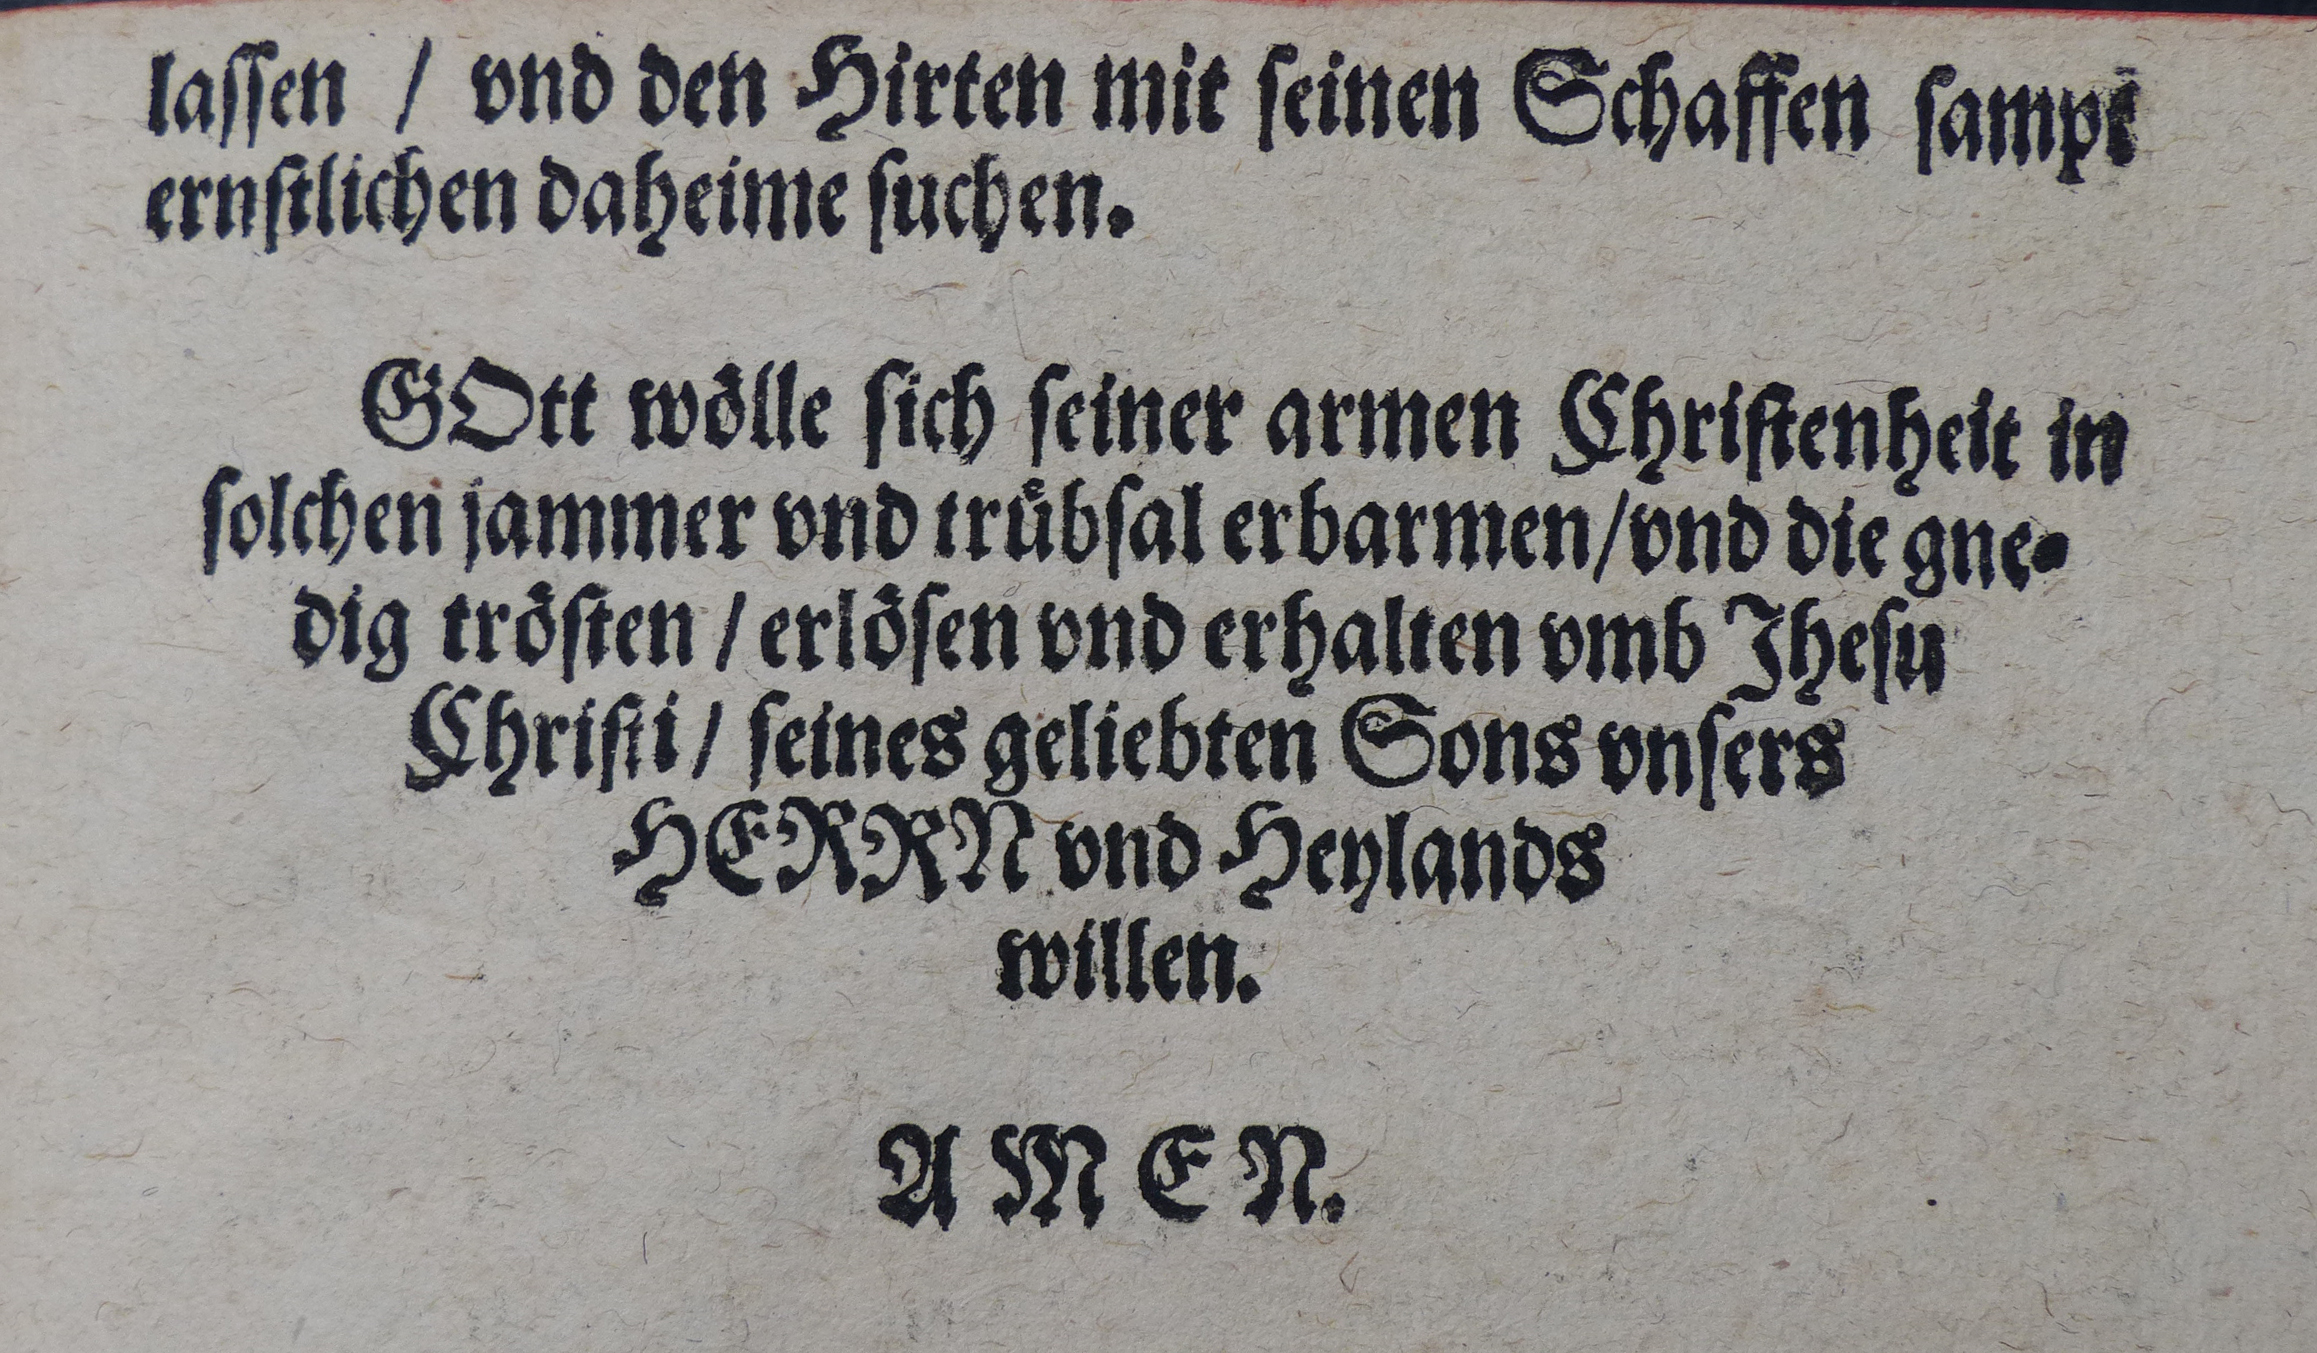 laſſen / vnd den Hirten mit ſeinen Schaffen ſampt
ernſtlichen daheime ſuchen.
GOtt woͤlle ſich ſeiner armen Chriſtenheit in
ſolchen jammer vnd truͤbſal erbarmen/vnd die gne-
dig troͤſten / erloͤſen vnd erhalten vmb Jheſu
Chriſti / ſeines geliebten Sons vnſers
HERRN vnd Heylands
willen.
A M E N.